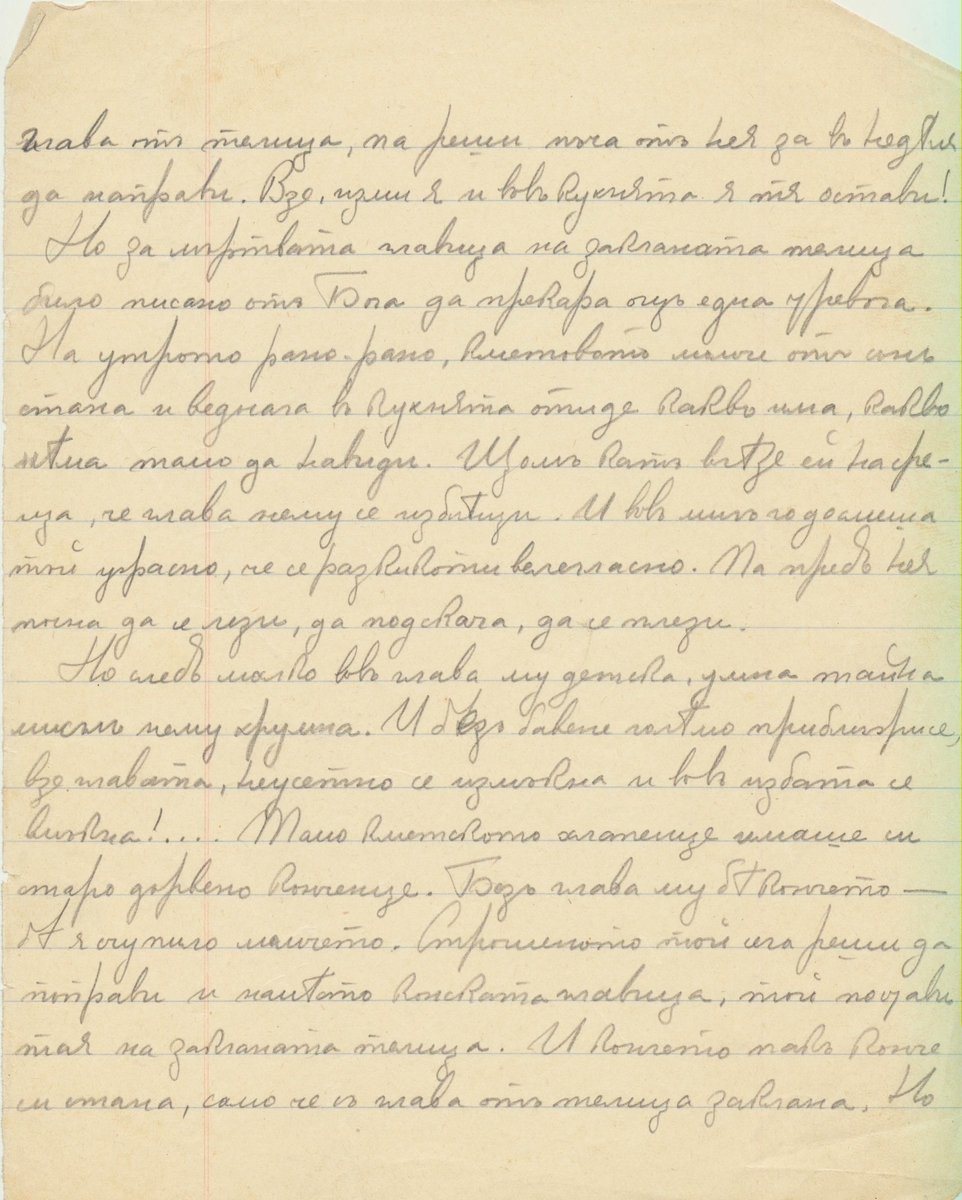 глава отъ телица, па реши пача отъ нея за въ недѣля
да направи. Взе, изми я и въвъ кухнята я тя остави!
Но за мъртвата главица на закланата телица
било писано отъ Бога да прекара ощъ една уревога.
На утрото рано-рано, кметовото момче отъ сънъ
стана и веднага въ кухнята отиде какво има, какво
нѣма тамо да навиди. Щомъ като влѣзе ѝ насре-
ща, че глава нему се изблѣщи. И въвъ мигого досмеша
той ужасно, че се разкикоти велегласно. Па предъ нея
почна да се лези, да подскача, да се плези.
Но следъ малко въвъ глава му детска, умна тайна
мисъль нему хрумна. И безъ бавене голѣмо приближисе,
взе главата, неусетно се измъкна и въвъ избата се
вмъкна!.... Тамо кметското хлапенце имаше си
старо дървено конченце. Безъ глава му бѣ кончето —
бѣ я счупило момчето. Строшеното той сега реши да
поправи и наместо конската главица, той постави
тая на закланата телица. И кончето пакъ конче
си стана, само че съ глава отъ телица заклана. Но